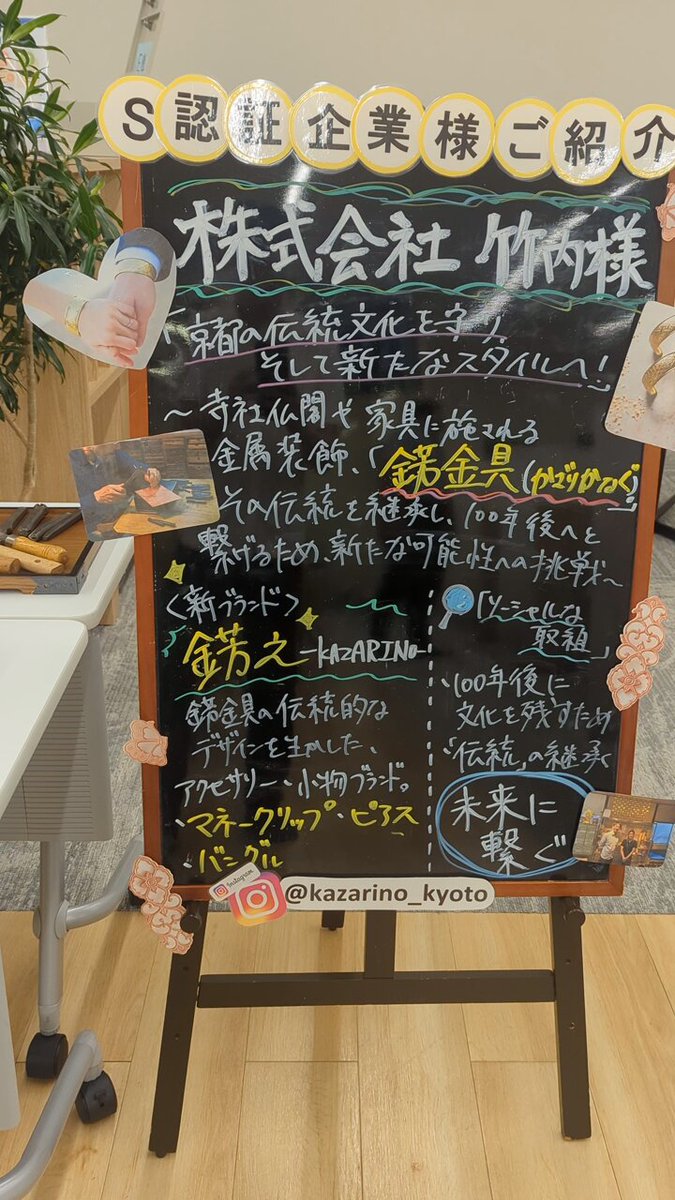 S認証企業様ご紹介
株式会社 竹内様
「京都の伝統文化を守り
そして新たなスタイルへ!
～寺社仏閣や家具に施される
金属装飾、「錺金具(かざりかなぐ)」
その伝統を継承し、100年後へと
繋げるため、新たな可能性への挑戦～
<新ブランド>
錺之-KAZARINO-
錺金具の伝統的な
デザインを生かした、
アクセサリー・小物ブランド。
・マネークリップ・ピアス
・バングル
「ソーシャルな
取組」
・100年後に
文化を残すため
「伝統」の継承く
未来に
繋ぐ
Instagram
@kazarino_kyoto